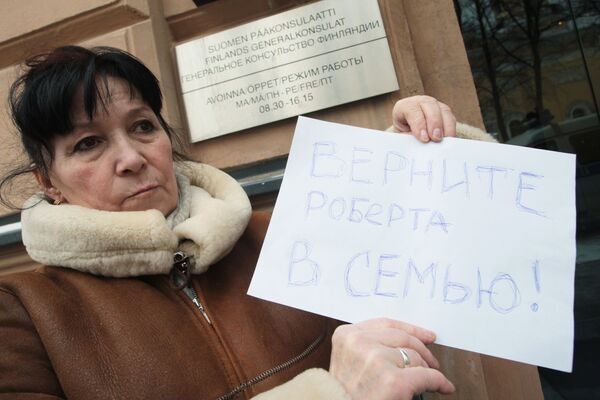 SUOMEN PÄÄKONSULAATTI
FINLANDS GENERALKONSULAT
ГЕНЕРАЛЬНОЕ КОНСУЛЬСТВО ФИНЛЯНДИИ
AVOINNA ÖPPET/РЕЖИМ РАБОТЫ
MA/MÅ/ПН - PE/FRE/ПТ
08.30 -16 15
ВЕРНИТЕ
РОБЕРТА
В СЕМЬЮ!